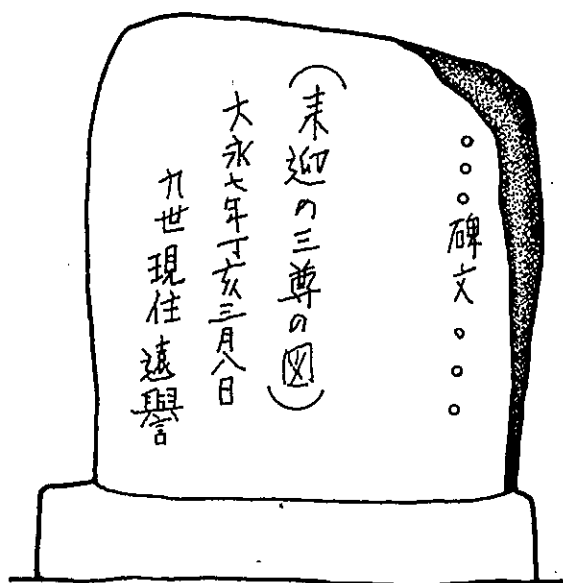 。。。碑文。。。
(来迎の三尊の図)
大永七年丁亥三月八日
九世現住遠譽